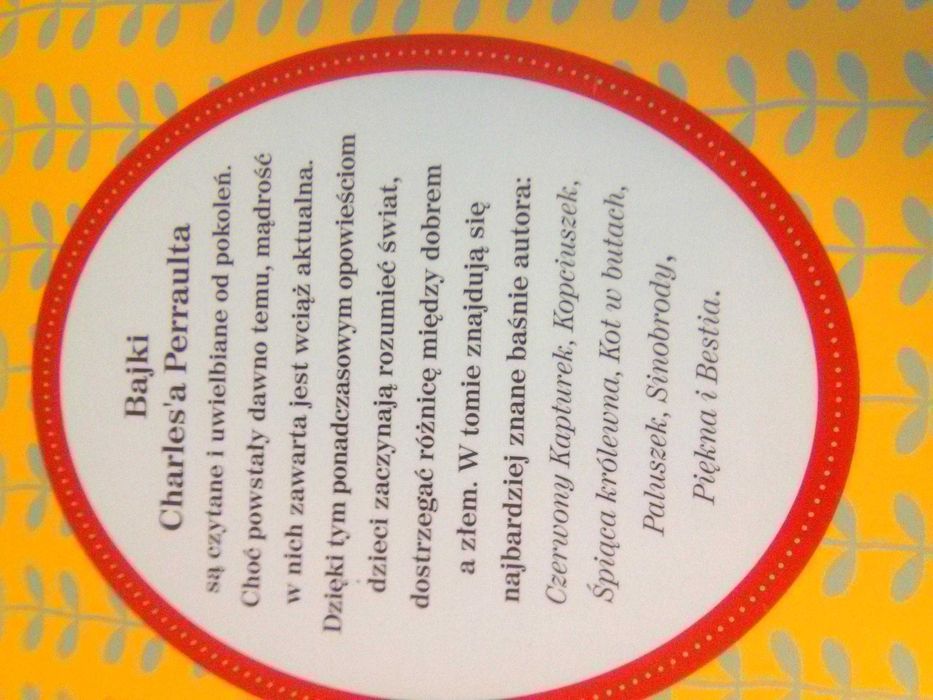 Bajki
Charles'a Perraulta
są czytane i uwielbiane od pokoleń.
Choć powstały dawno temu, mądrość
w nich zawarta jest wciąż aktualna.
Dzięki tym ponadczasowym opowieściom
dzieci zaczynają rozumieć świat,
dostrzegać różnicę między dobrem
a złem. W tomie znajdują się
najbardziej znane baśnie autora:
Czerwony Kapturek, Kopciuszek,
Śpiąca królewna, Kot w butach,
Paluszek, Sinobrody,
Piękna i Bestia.